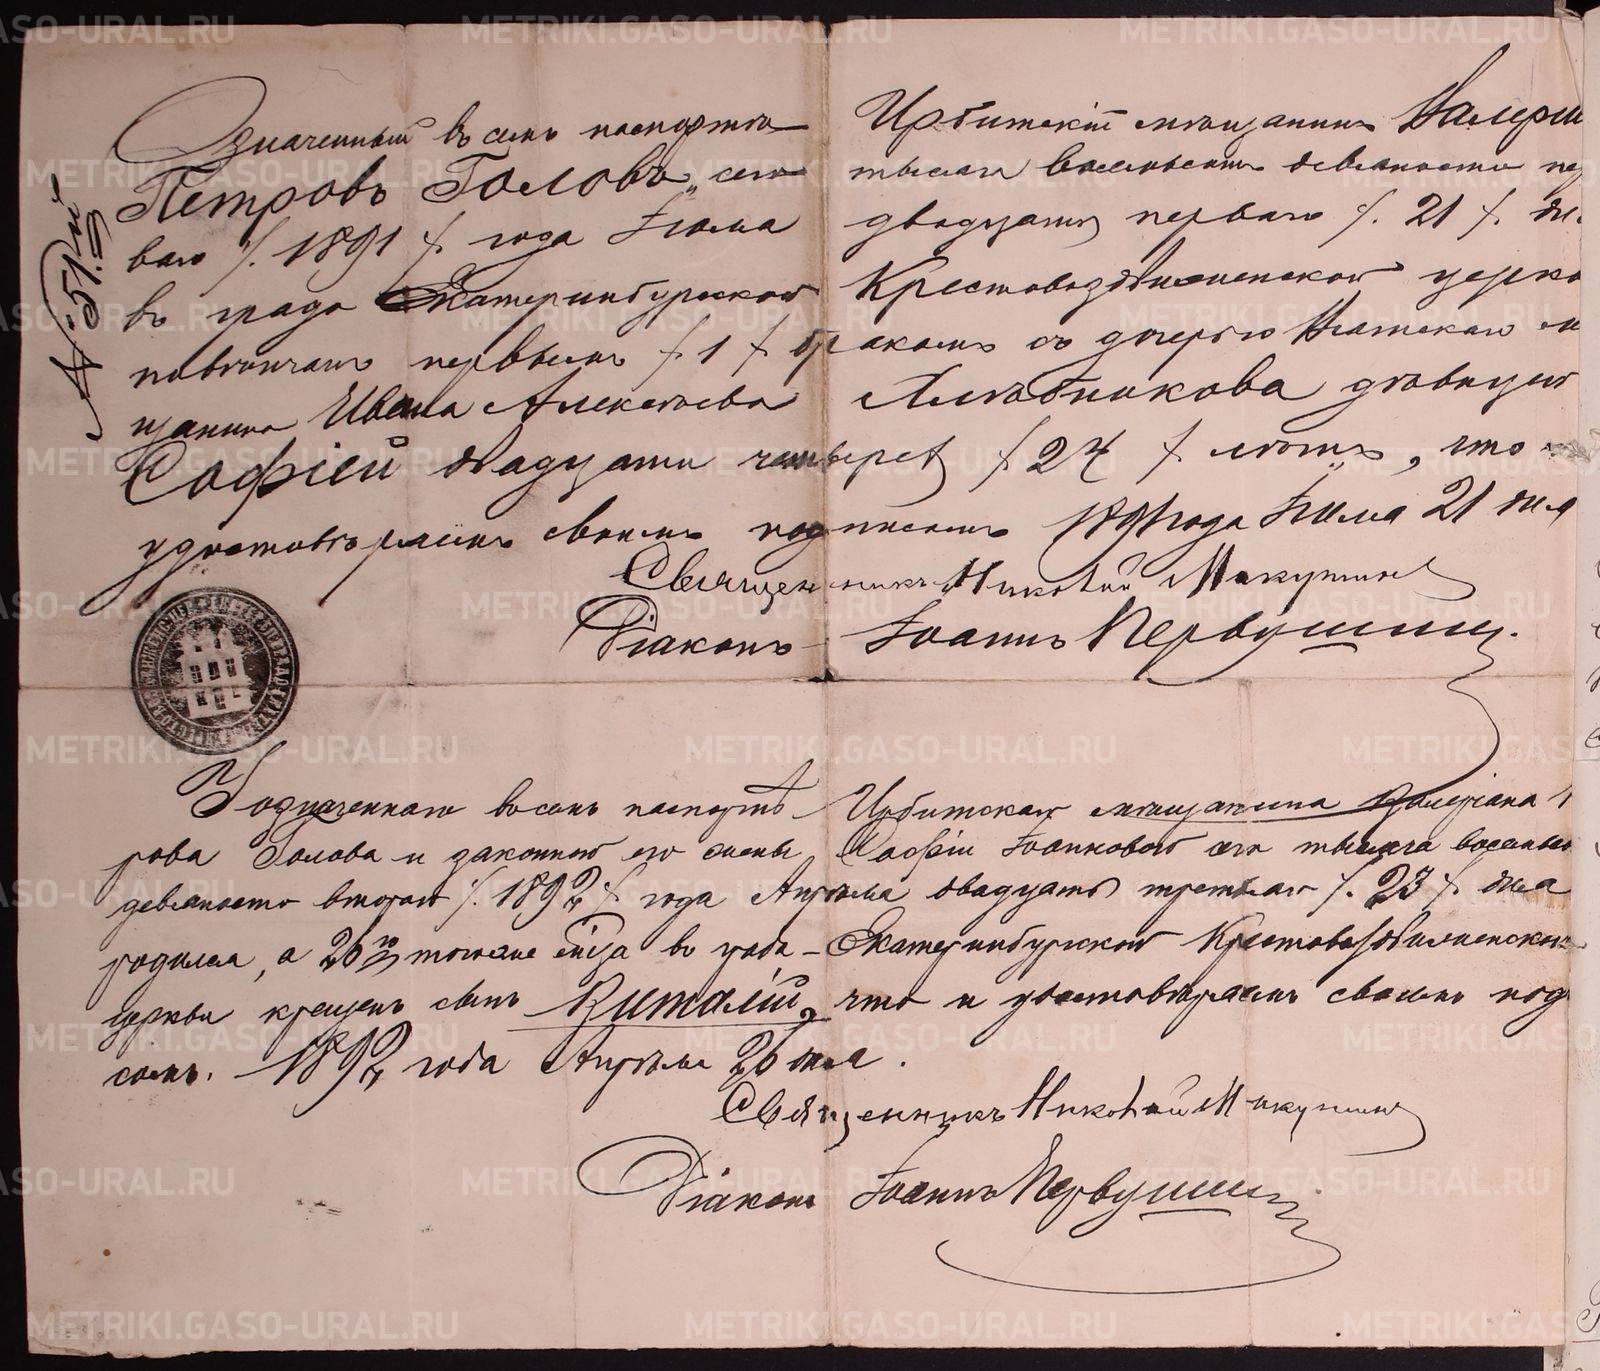 Означенный въ семъ паспортѣ Ирбитскій мѣщанинъ Валері
Петровъ Головъ, сего тысяча восемьсотъ девяносто пер
ваго /. 1891 /. года Іюля двадцать перваго /. 21 /. дн
въ градо Екатеринбургской Крестовоздвиженской церкв
повѣнчанъ первымъ /. 1 /. бракомъ съ дочерью Вятскаго м
щанина Ивана Алексѣева дѣвицей
Софіей двадцати четырехъ /. 24 /. лѣтъ, что
удостовѣряемъ своимъ подписомъ 1891 года 21 дня
Священникъ Николай Макушинъ
Діаконъ Іоаннъ Первушинъ.
У означеннаго въ семъ паспортѣ Ирбитскаго мѣщанина Валеріана П
рова Голова и законной его жены Софіи Іоанновой сего тысяча восемьсо
девяносто втораго /. 1892 /. года Апрѣля двадцать третьяго /. 23 /. дня
родился, а 26го тогоже м̃ца въ градо-Екатеринбургской Крестовоздвиженской
церкви крещенъ сынъ Виталій, что и удостовѣряемъ своимъ под
сомъ. 1892 года Апрѣля 26 дня.
Священникъ Николай Макушинъ
Діаконъ Іоаннъ Первушинъ
METRIKI.GASO-URAL.RU